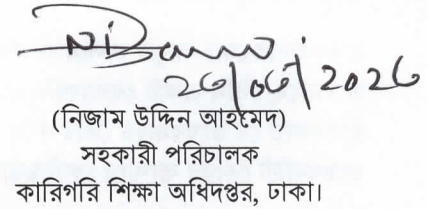 ২৬/০৬/২০২৬
(নিজাম উদ্দিন আহমেদ)
সহকারী পরিচালক
কারিগরি শিক্ষা অধিদপ্তর, ঢাকা।